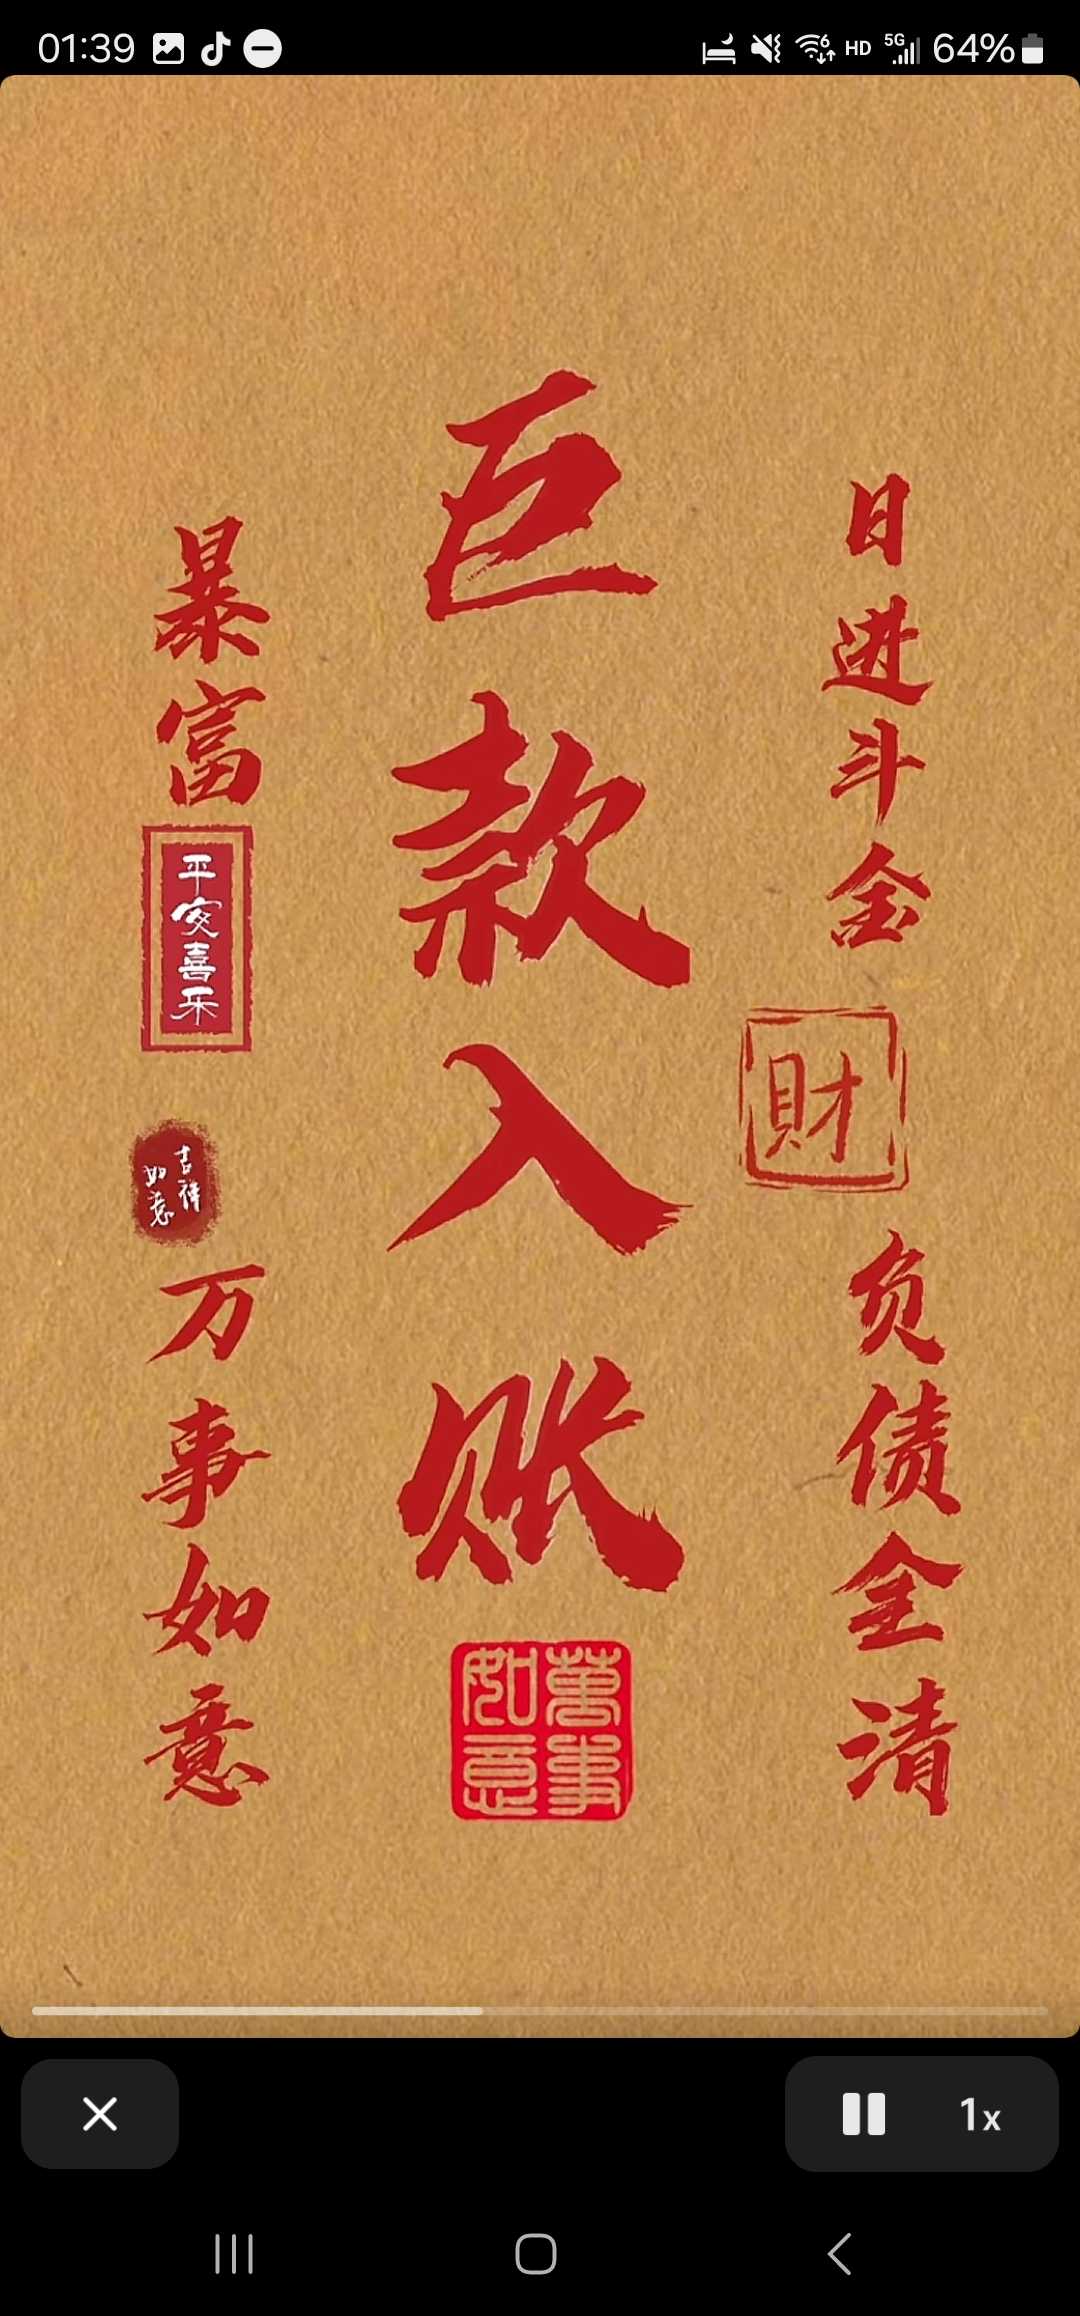 01:39
HD
5G
64%
巨款入账
萬事如意
日进斗金
財
负债全清
暴富
平安喜乐
吉祥如意
万事如意
1x